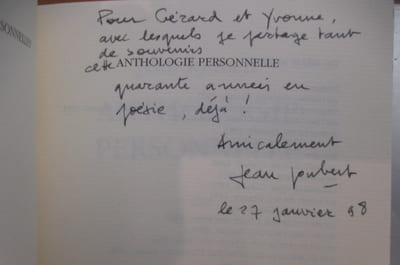 SONNELLE
Pour Gérard et Yvonne,
avec lesquels je partage tant
de souvenirs
cette
ANTHOLOGIE PERSONNELLE
quarante années en
poésie, déjà !
Amicalement
Jean Joubert
le 27 janvier 98